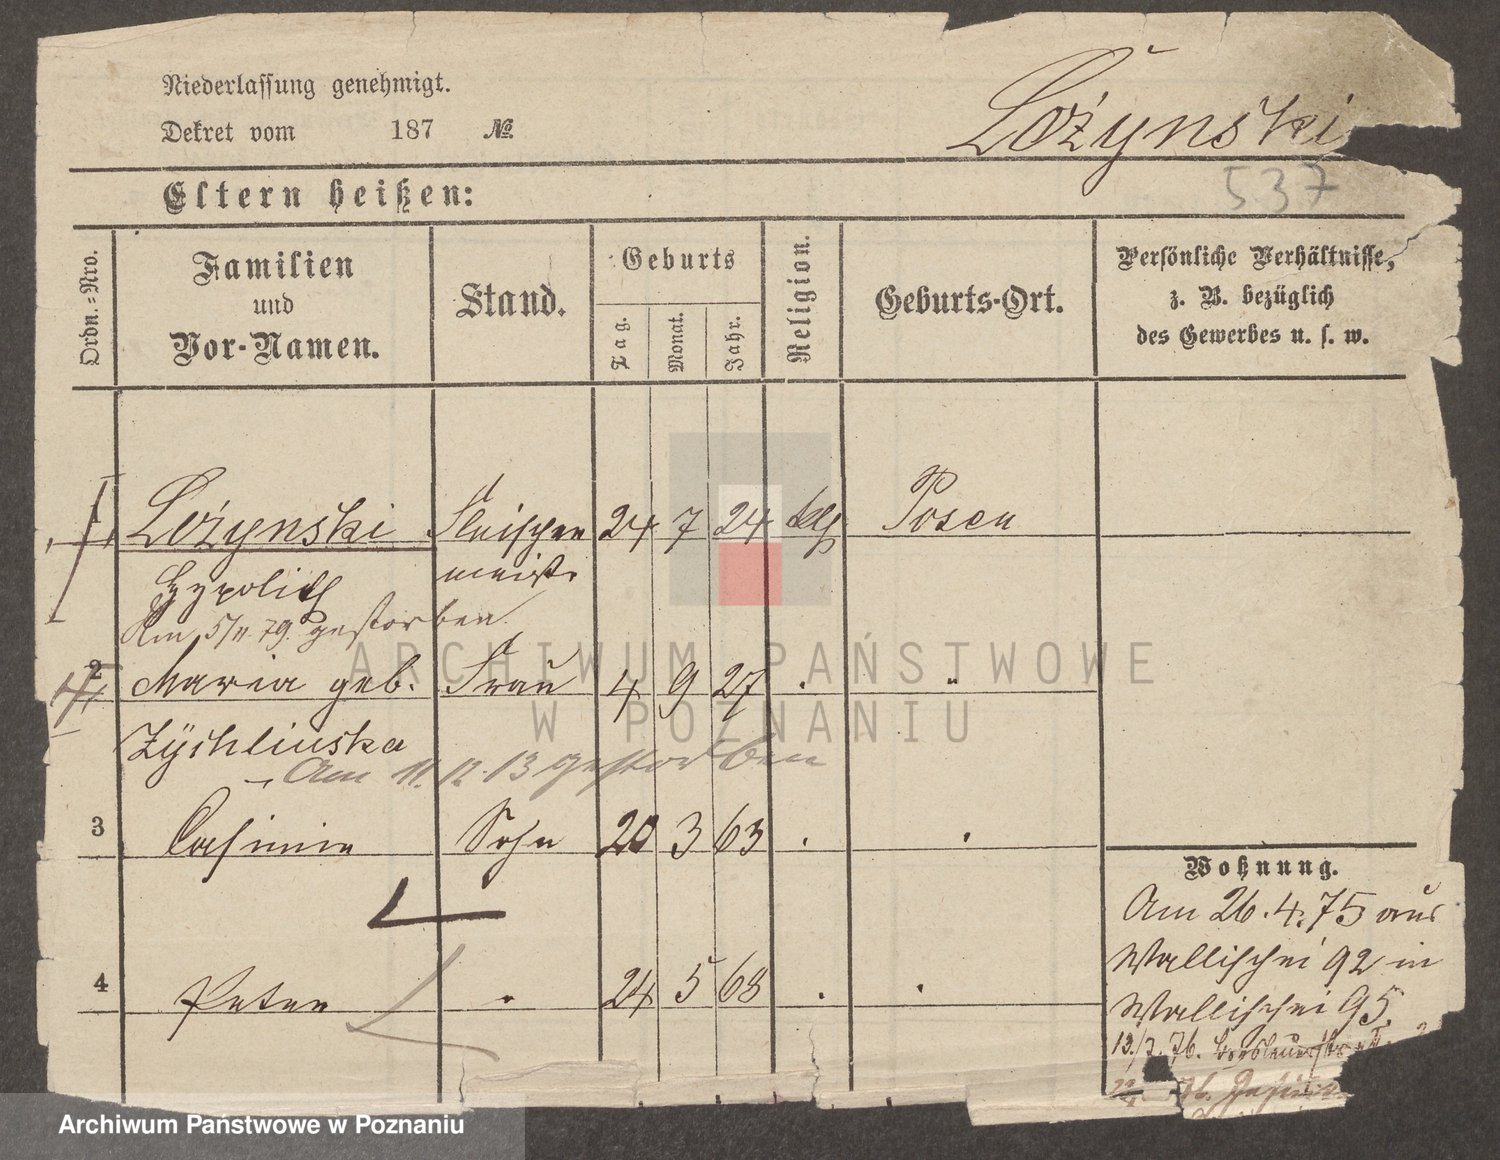 Niederlassung genehmigt.
Dekret vom 187 №
Łożynski
537
Eltern heißen:
Ordn.-Nro.
Familien
und
Vor-Namen.
Stand.
Geburts
Tag.
Monat.
Jahr.
Religion.
Geburts-Ort.
Persönliche Verhältnisse,
z. B. bezüglich
des Gewerbes u. s. w.
1 Łożynski Fleischer 24 7 24 kth Posen
Hypolith meist.
Am 5/11. 79. gestorben.
2 Maria geb. Frau 4 9 27 . "
Zÿchlinska
Am 11. 12. 13 gestorben
3 Casimir Sohn 20 3 63 . .
4 Peter " 24 5 68 . .
Wohnung.
Am 26. 4. 75 aus
Wallischei 92 in
Wallischei 95.
13./7. 76.
76.
ARCHIWUM PAŃSTWOWE
W POZNANIU
Archiwum Państwowe w Poznaniu